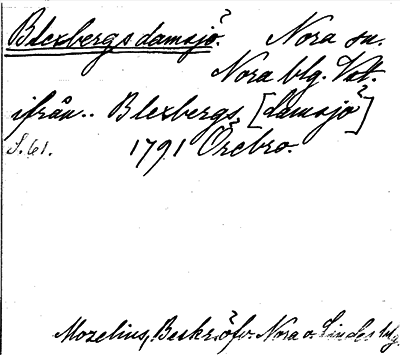 Blexbergsdamsjö. Nora sn.
Nora blg. Vstl.
ifrån.. Blexbergs [damsjö]
S. 61. 1791 Örebro.
Mozelius, Beskr. öfv. Nora o. Lindes blg.